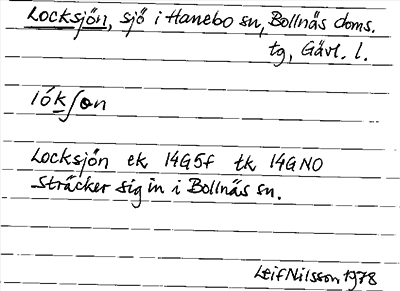 Locksjön, sjö i Hanebo sn, Bollnäs doms.
tg, Gävl. l.
lókʃon
Locksjön ek 14G5f tk 14GNO
Sträcker sig in i Bollnäs sn.
Leif Nilsson 1978